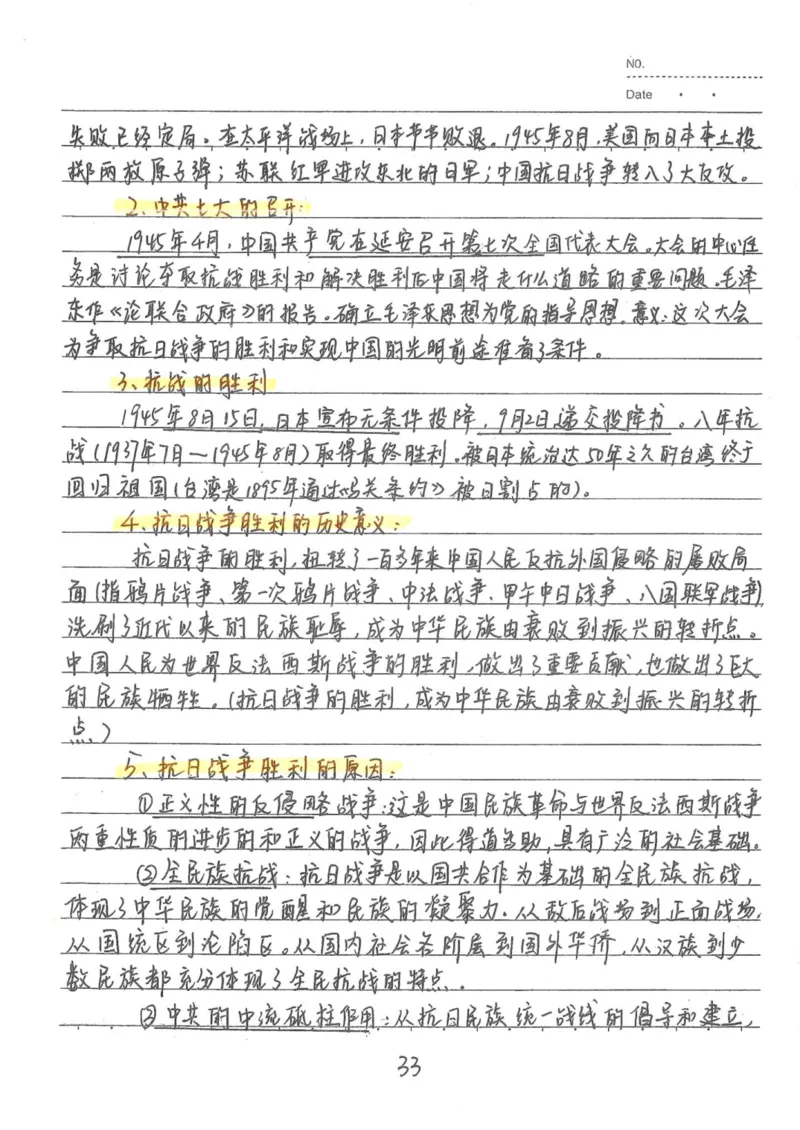 NO.
Date
失败已经定局。在太平洋战场上，日本节节败退。1945年8月，美国向日本本土投
掷两枚原子弹；苏联红军进攻东北的日军；中国抗日战争转入了大反攻。
2、中共七大的召开：
1945年4月，中国共产党在延安召开第七次全国代表大会。大会的中心任
务是讨论夺取抗战胜利和解决胜利后中国将走什么道路的重要问题。毛泽
东作《论联合政府》的报告。确立毛泽东思想为党的指导思想。意义：这次大会
为争取抗日战争的胜利和实现中国的光明前途准备了条件。
3、抗战的胜利
1945年8月15日，日本宣布无条件投降，9月2日递交投降书。八年抗
战（1937年7月—1945年8月）取得最终胜利。被日本统治达50年之久的台湾终于
回归祖国（台湾是1895年通过《马关条约》被日割占的）。
4、抗日战争胜利的历史意义：
抗日战争的胜利，扭转了一百多年来中国人民反抗外国侵略的屡败局
面（指鸦片战争、第一次鸦片战争、中法战争、甲午中日战争、八国联军战争），
洗刷了近代以来的民族耻辱，成为中华民族由衰败到振兴的转折点。
中国人民为世界反法西斯战争的胜利，做出了重要贡献，也做出了巨大
的民族牺牲。（抗日战争的胜利，成为中华民族由衰败到振兴的转折
点。）
5、抗日战争胜利的原因：
①正义性的反侵略战争：这是中国民族革命与世界反法西斯战争
两重性质的进步的和正义的战争，因此得道多助，具有广泛的社会基础。
②全民族抗战：抗日战争是以国共合作为基础的全民族抗战，
体现了中华民族的觉醒和民族的凝聚力。从敌后战场到正面战场，
从国统区到沦陷区。从国内社会各阶层到国外华侨，从汉族到少
数民族都充分体现了全民抗战的特点。
③中共的中流砥柱作用：从抗日民族统一战线的倡导和建立，
33